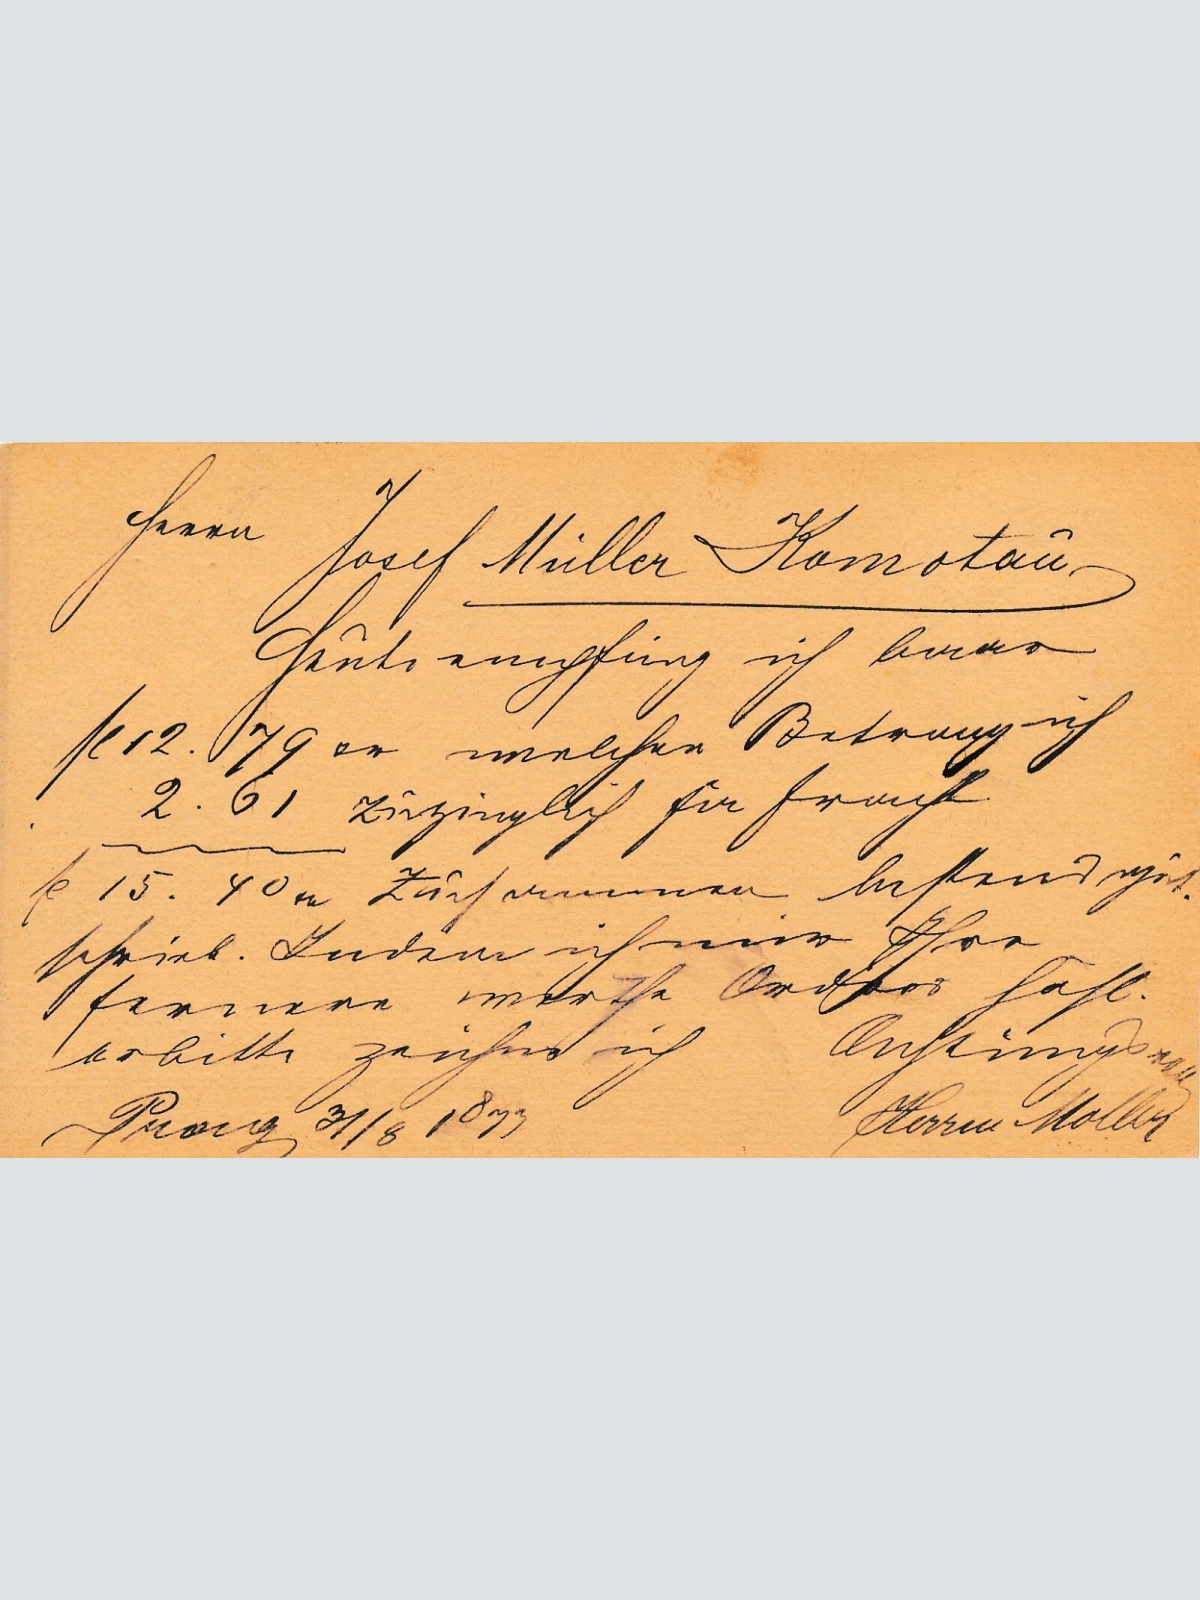 Herrn Josef Müller Komotau
Heute empfing ich baar
fl 12. 79 xr welchen Betrag ich
2. 61 zuzüglich für Fracht
fl 15. 40 xr Zusammen bestens gut
schrieb. Indem ich mir Ihre
fernere werthe Ordres höfl.
erbitte zeichne ich Achtungsvoll
Prag 31/8 1877